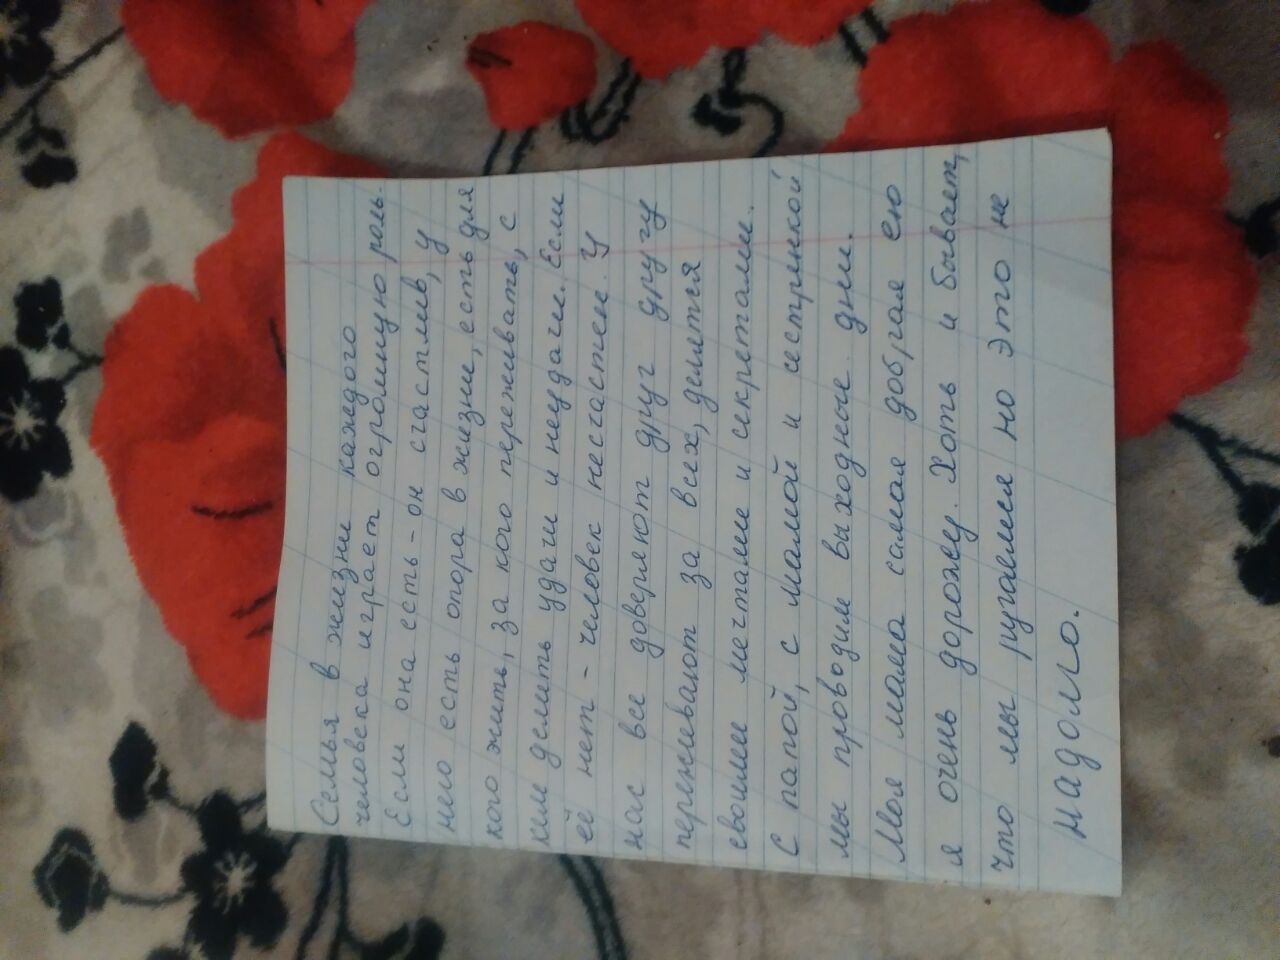 Семья в жизни каждого
человека играет огромную роль.
Если она есть - он счастлив, у
него есть опора в жизни, есть для
кого жить, за кого переживать, с
кем делить удачи и неудачи. Если
её нет - человек несчастен. У
нас все доверяют друг другу
переживают за всех, делятся
своими мечтами и секретами.
С папой, с мамой и сестринкой
мы проводим выходные дни.
Моя мама самая добрая ею
я очень дорожу. Хоть и бывает,
что мы ругаемся но это не
надолго.